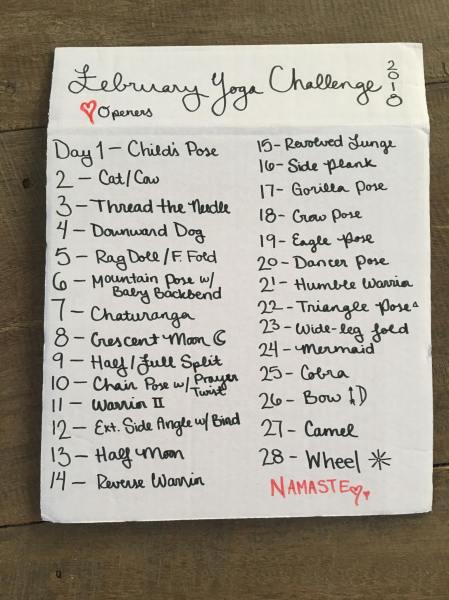 February Yoga Challenge 2018
Openers
Day 1 - Child's Pose
2 - Cat/Cow
3 - Thread the Needle
4 - Downward Dog
5 - Rag Doll / F. Fold
6 - Mountain Pose w/
Baby Backbend
7 - Chaturanga
8 - Crescent Moon
9 - Half/Full Split
10 - Chair Pose w/ Prayer
Twist
11 - Warrior II
12 - Ext. Side Angle w/ Bind
13 - Half Moon
14 - Reverse Warrior
15 - Revolved Lunge
16 - Side Plank
17 - Gorilla Pose
18 - Crow Pose
19 - Eagle Pose
20 - Dancer Pose
21 - Humble Warrior
22 - Triangle Pose
23 - Wide-leg fold
24 - Mermaid
25 - Cobra
26 - Bow
27 - Camel
28 - Wheel
NAMASTE